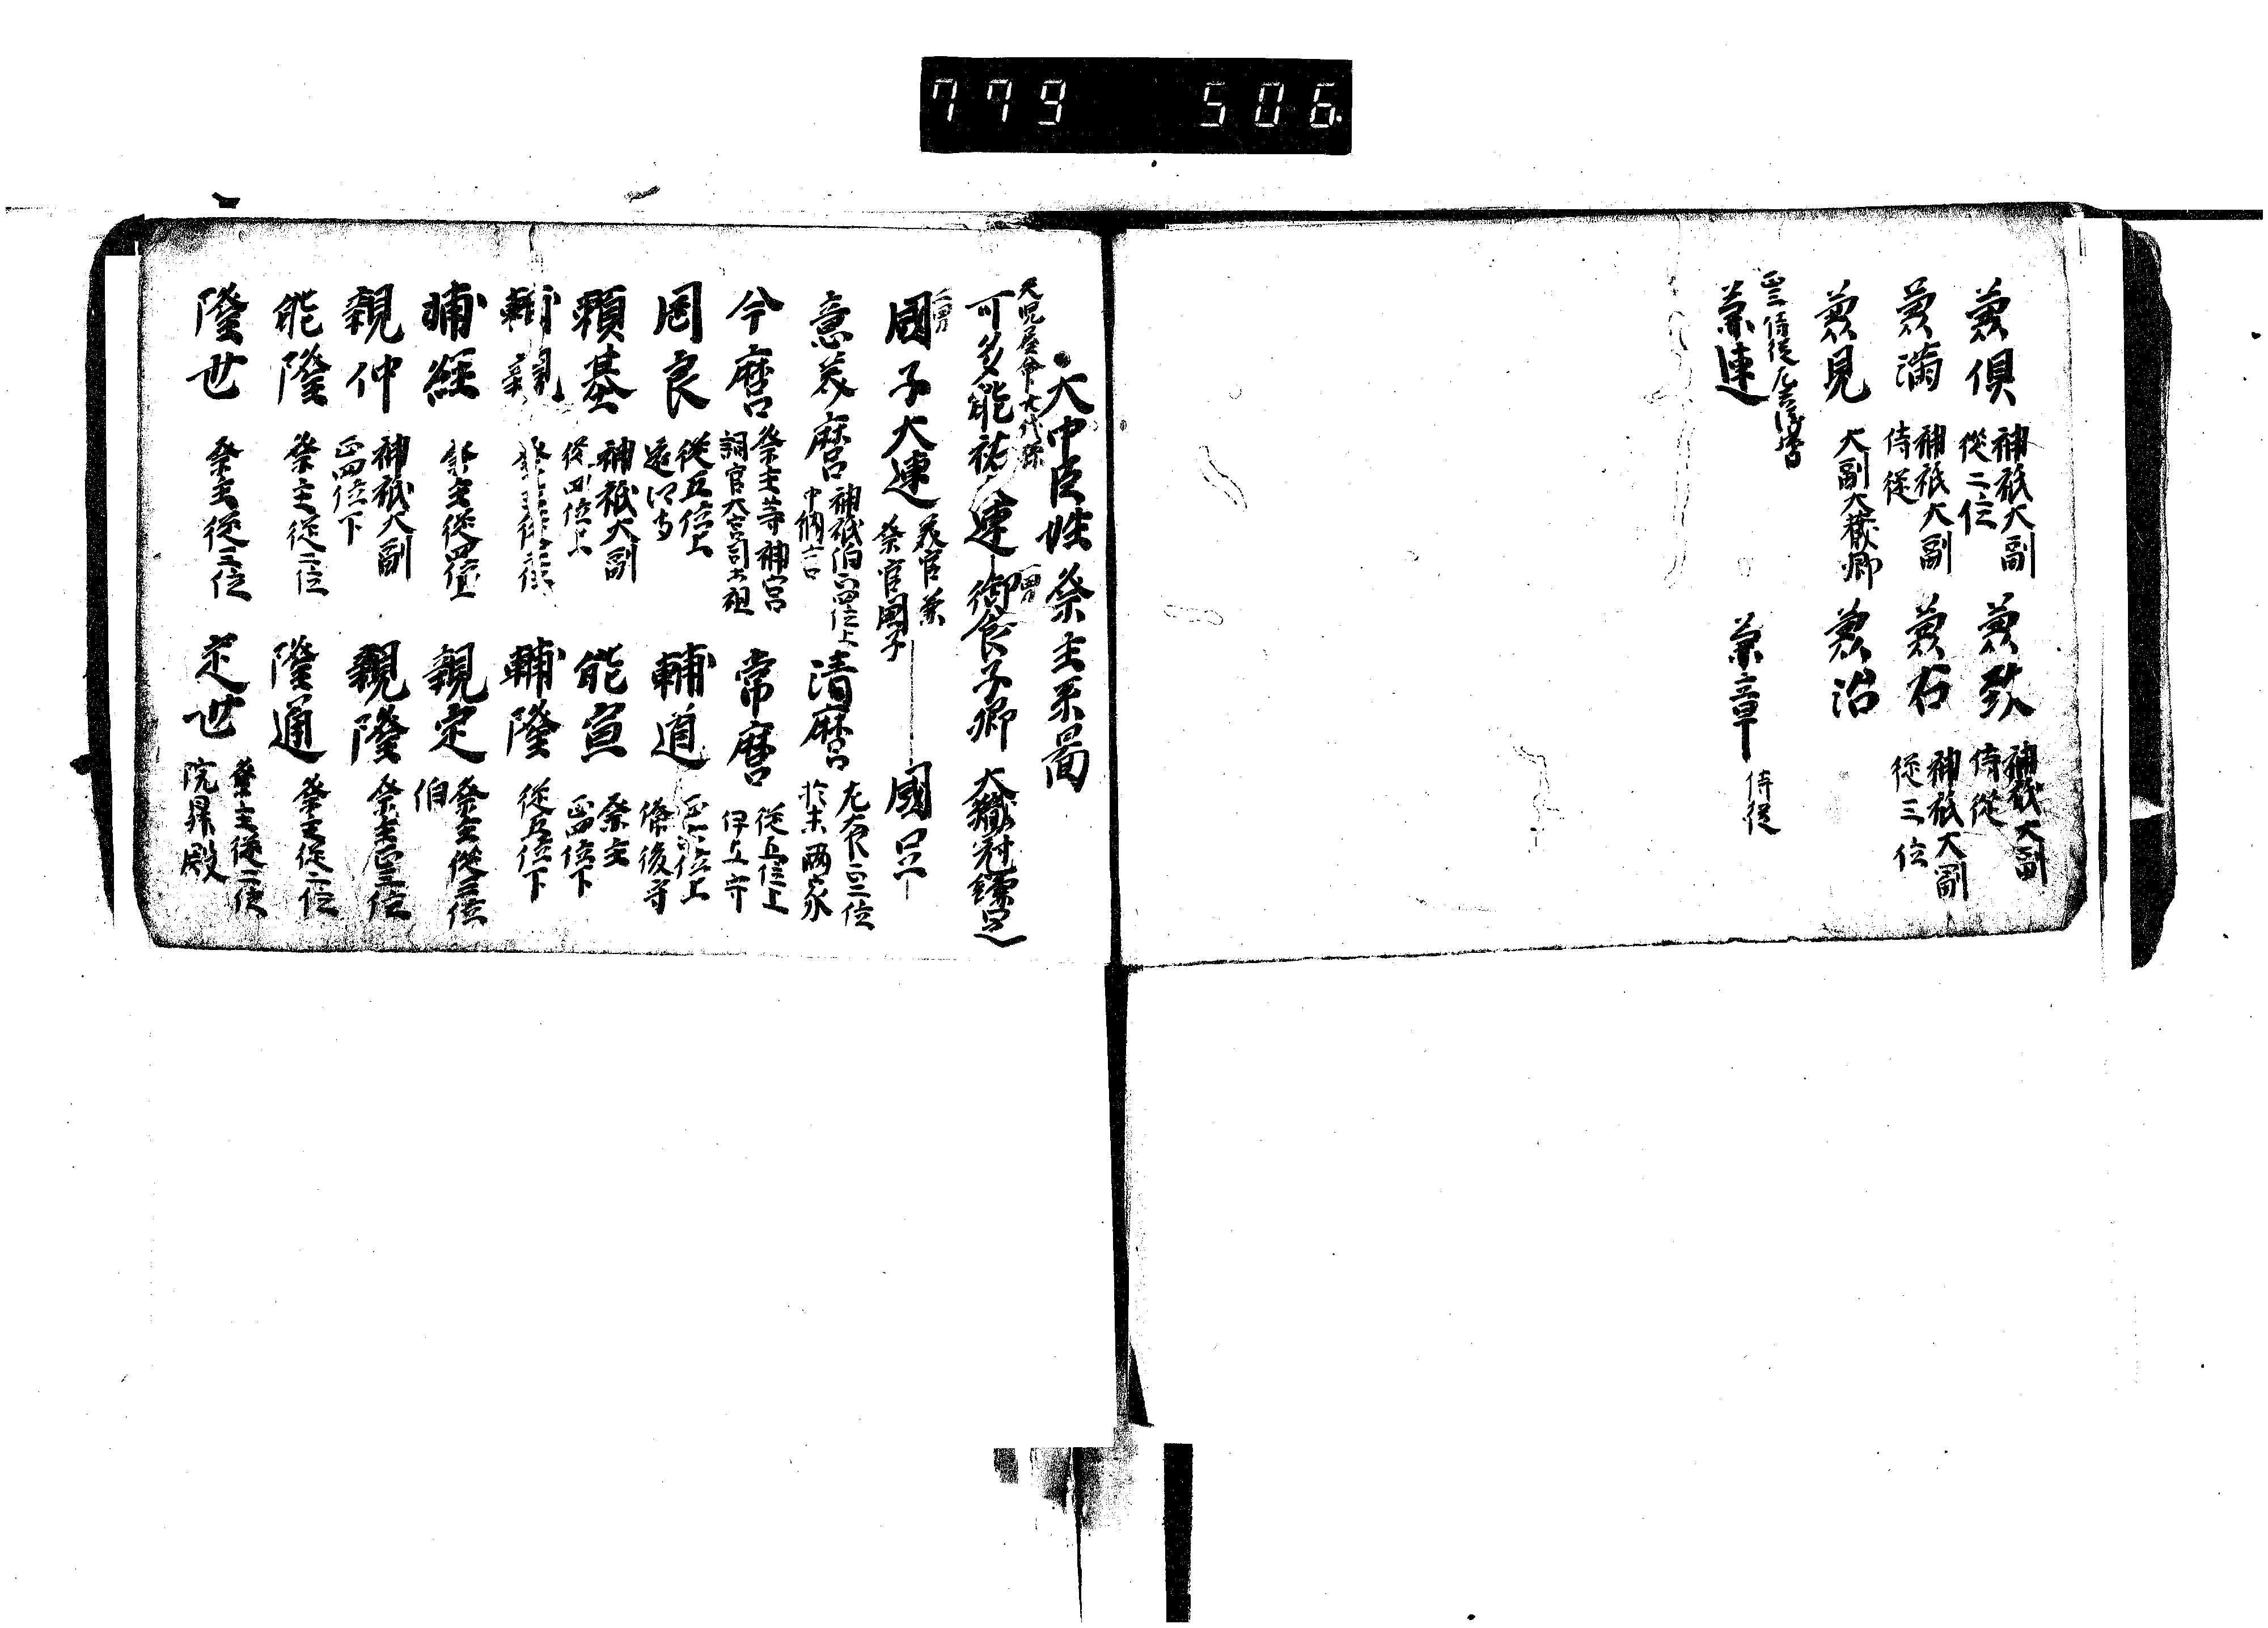 779 506
兼倶 神祇大副
従二位
兼致 神祇大副
侍従
兼満 神祇大副
侍従
兼右 神祇大副
従三位
兼見
兼治
大副大蔵卿
正三侍従左兵衛督
兼連
兼章 侍従
大中臣姓 祭主系圖
天児屋命十代孫
可多能祐大連 一男 御食子卿 大織冠鎌足
二男
國子大連 前官兼
祭官國子
國足
意美麿 神祇伯正四位上
中納言
清麿 右大臣正二位
於末両家
今麿 祭主等神宮
詞官大宮司太祖
常麿 従五位上
伊与守
岡良 従五位上
遠江守
輔道 正六位上
備後守
頼基 神祇大副
従四位上
能宣 祭主
正四位下
輔親
輔隆 従五位下
輔經 祭主従四位上
親定 祭主従三位
伯
親仲 神祇大副
正四位下
親隆 祭主正三位
能隆 祭主従二位
隆通 祭主従二位
隆世 祭主従三位
定世 祭主従二位
院昇殿